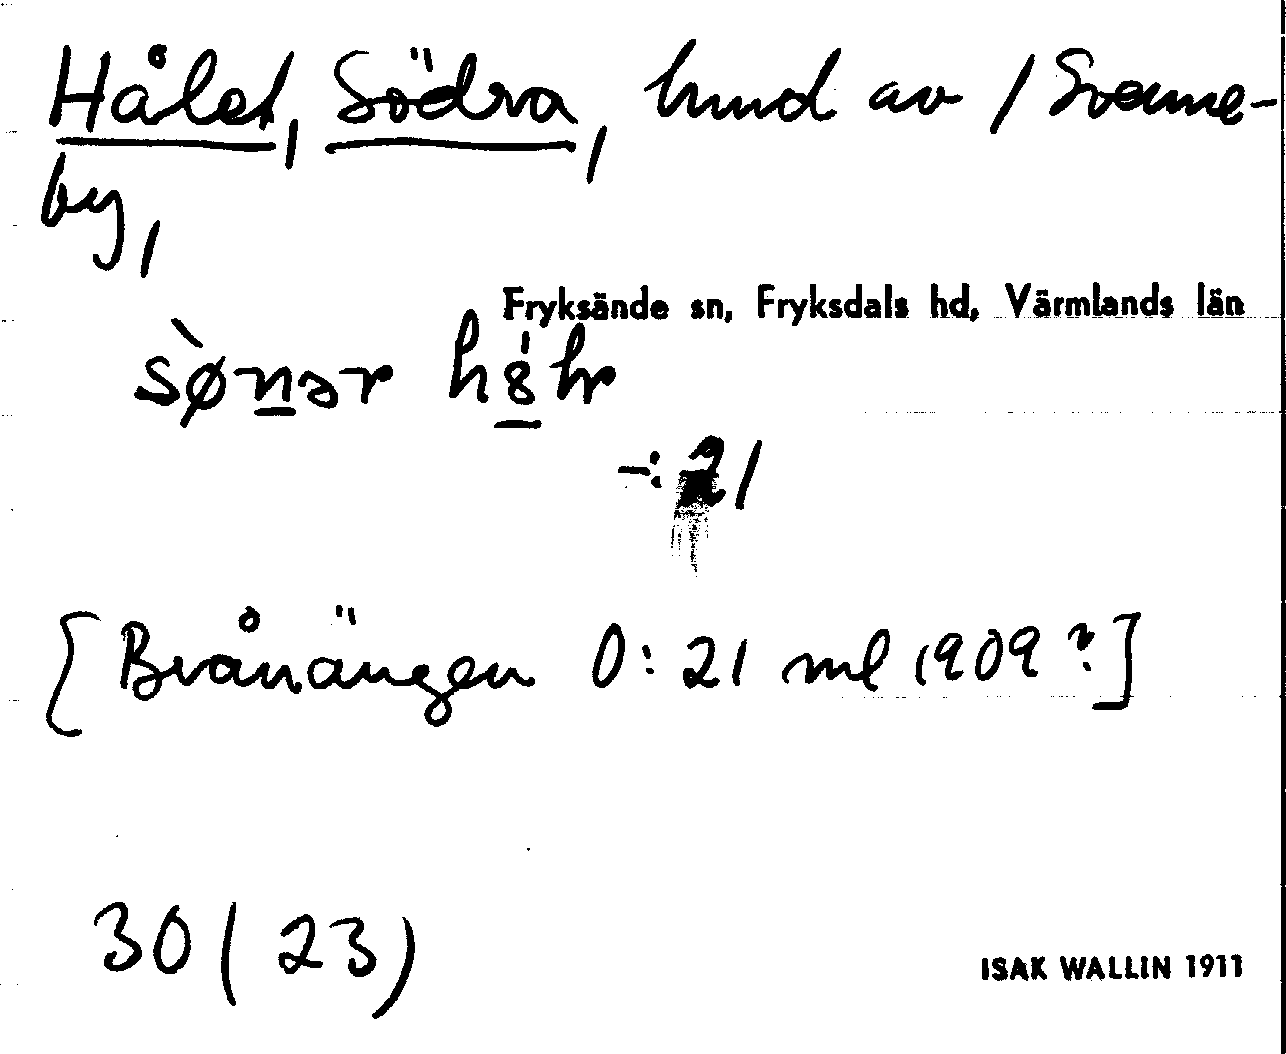 Hålet, Södra, hmd av / Svenne-
by,
Fryksände sn, Fryksdals hd, Värmlands län
-: 21
[Brånängen 0: 21 ml 1909?]
30 (23)
ISAK WALLIN 1911